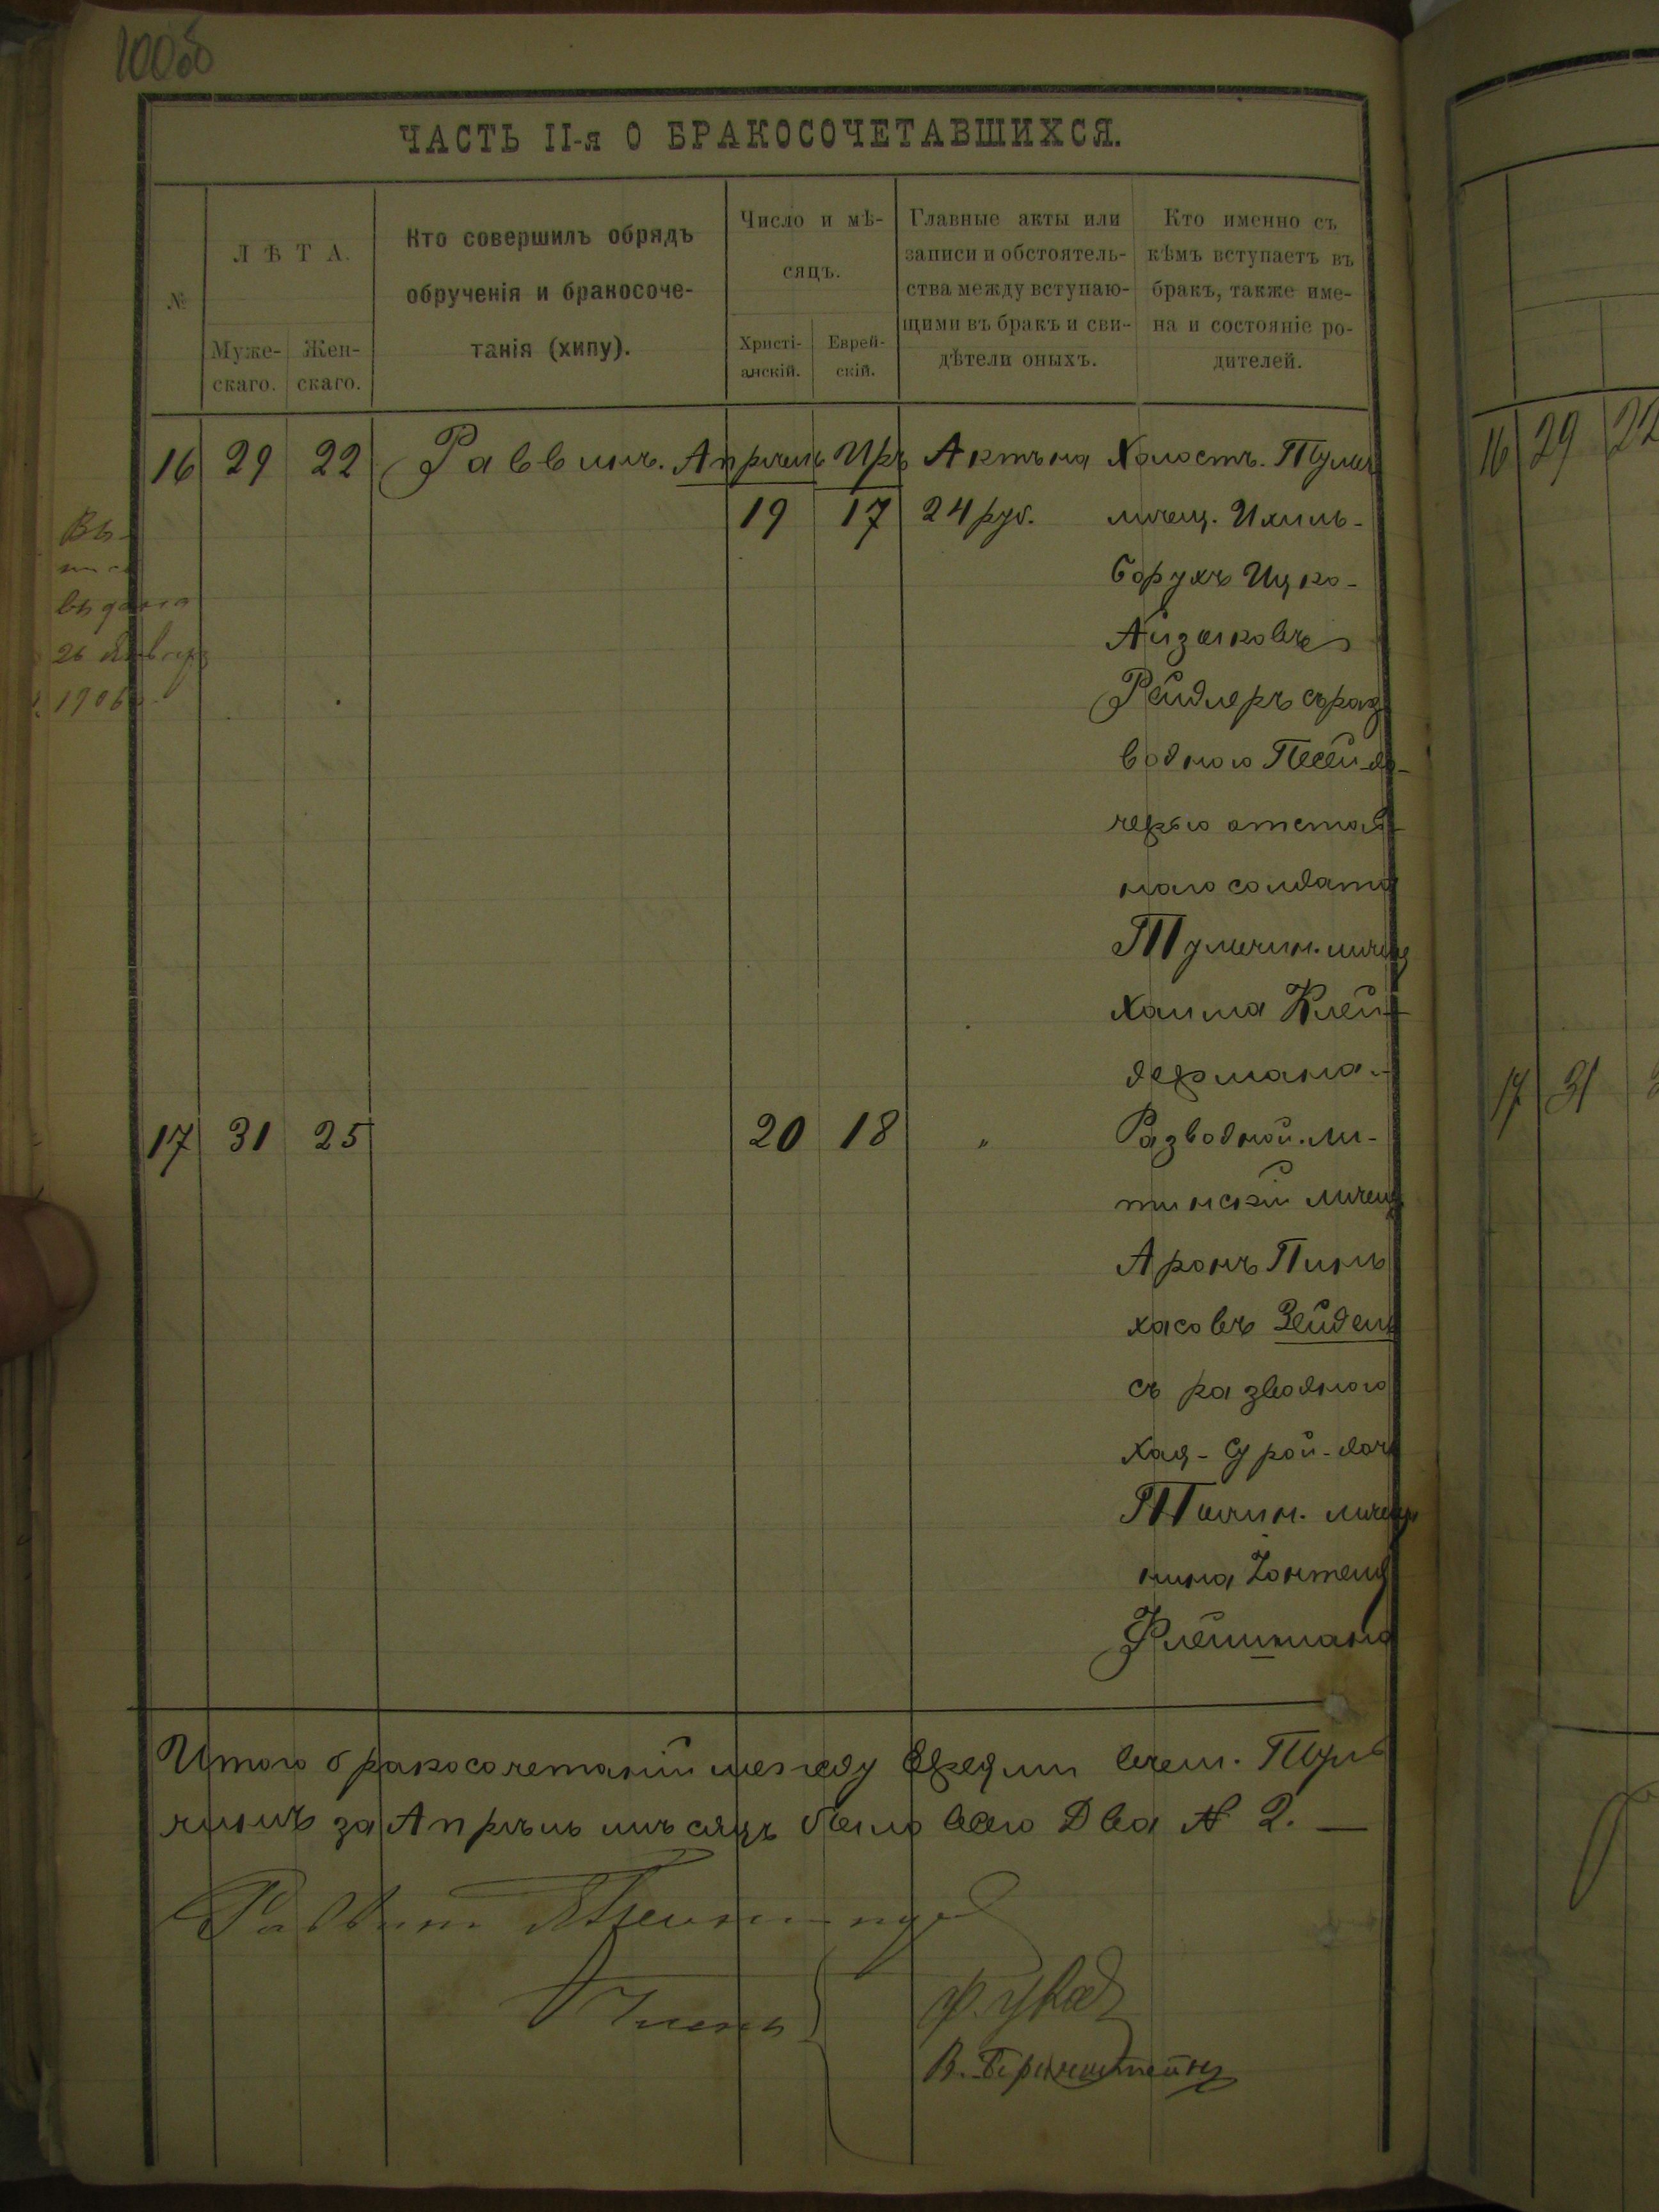 100об
ЧАСТЬ II-я О БРАКОСОЧЕТАВШИХСЯ.
№
ЛѢТА.
Муже-
скаго.
Жен-
скаго.
Кто совершилъ обрядъ
обрученія и бракосоче-
танія (хипу).
Число и мѣ-
сяцъ.
Христі-
анскій.
Еврей-
скій.
Главные акты или
записи и обстоятель-
ства между вступаю-
щими въ бракъ и сви-
дѣтели оныхъ.
Кто именно съ
кѣмъ вступаетъ въ
бракъ, также име-
на и состояніе ро-
дителей.
16 29 22 Раввинъ. Апрѣль Иръ Актъ на Холостъ. Тульч
19 17 24 руб. мѣщ. Ихиль-
Борухъ Ицко-
Айзиковъ
Рейдлеръ съ раз
водного Песей до-
черью отстав
ного солдата
Тульчин. мѣщ
Хаима Клей
дермана.-
17 31 25 20 18 „ Разводной. Ли-
тинскій мѣщ
Аронъ Пинь
хасовъ Зейдель
съ разводного
Хая-Сурой-доч
Тульчин. мѣщ
нина
Флейшмана
Вы-
пись
выдана
26 Января
1906
Итого бракосочетаній между Евреями въ м. Туль
чинѣ за Апрѣль мѣсяцъ было всего Два № 2. —
Раввинъ
Члены
В. Бернштейнъ
16 29 22
17 31